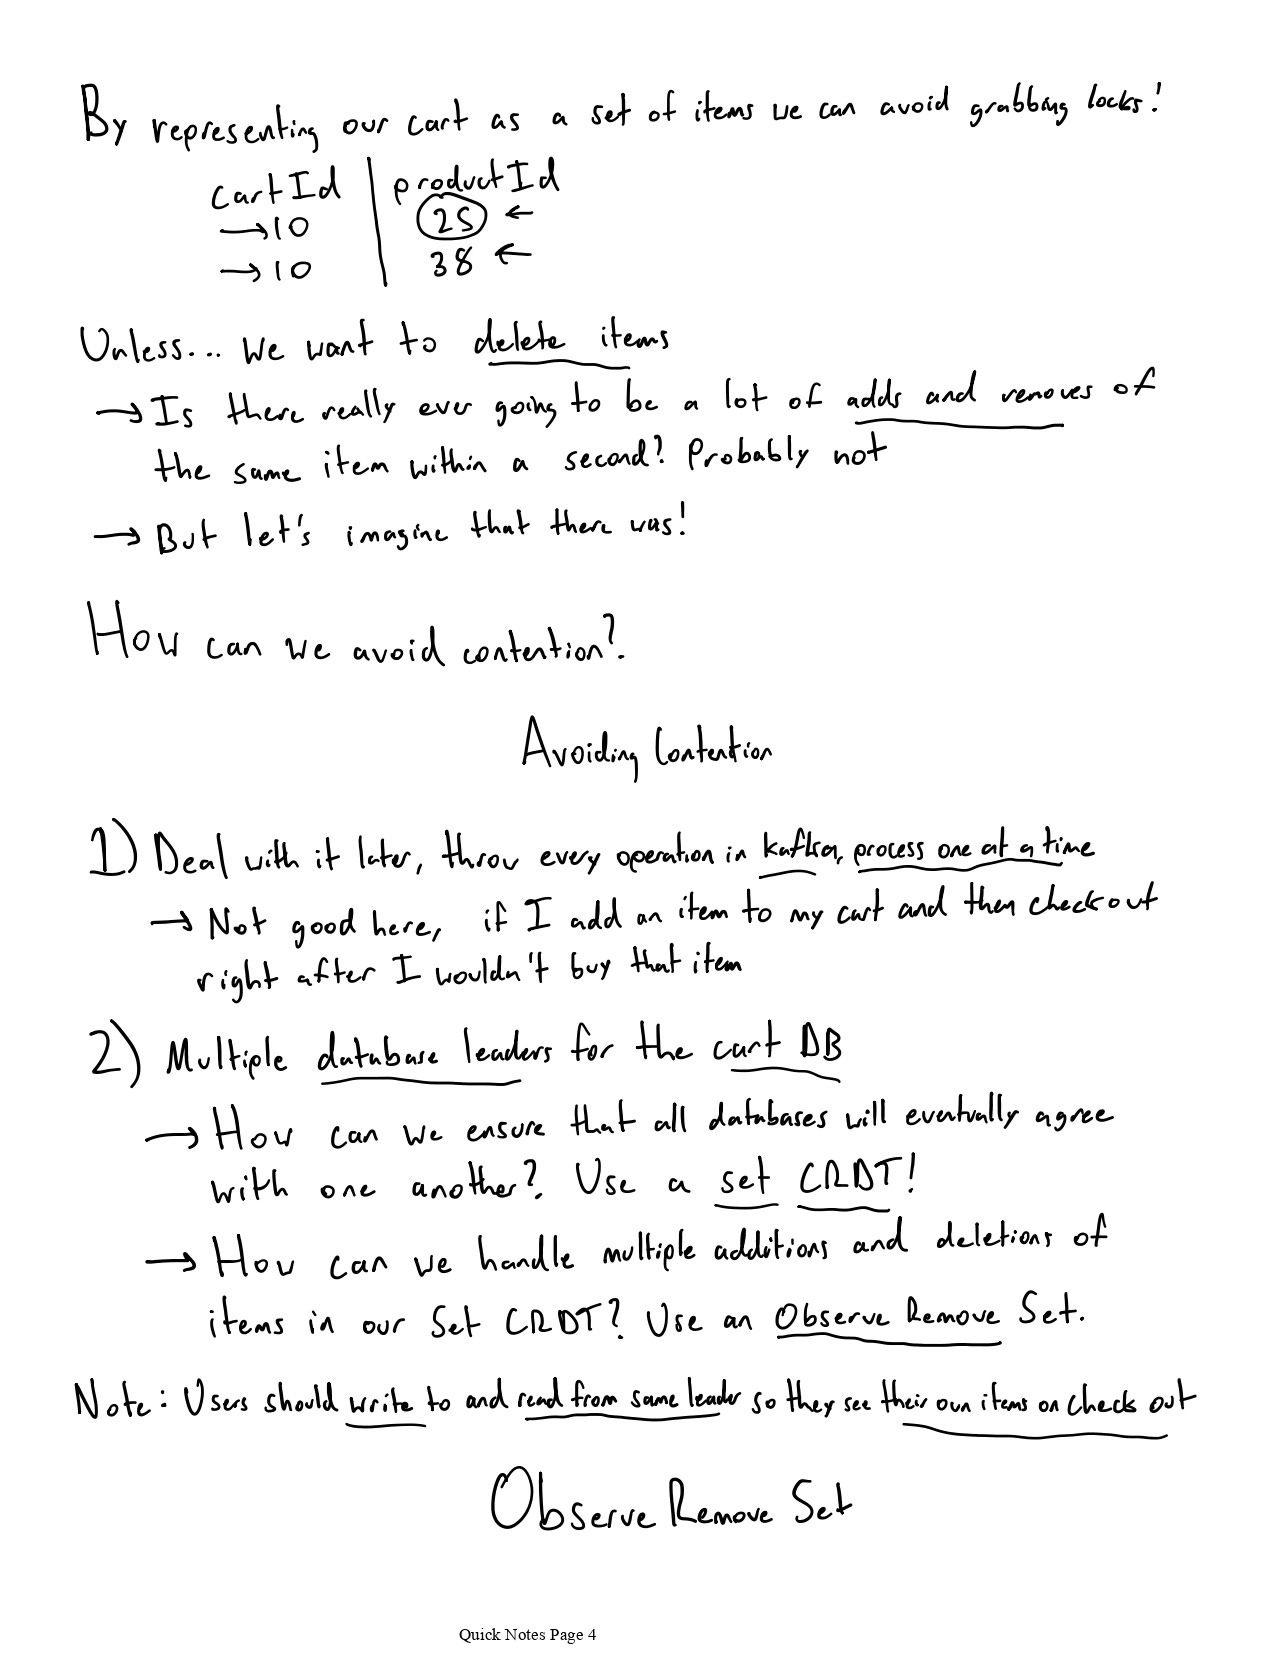 By representing our cart as a set of items we can avoid grabbing locks!
cartId | productId
→10 25 ←
→10 38 ←
Unless... We want to delete items
→ Is there really ever going to be a lot of adds and removes of
the same item within a second? Probably not
→ But let's imagine that there was!
How can we avoid contention?
Avoiding Contention
1) Deal with it later, throw every operation in kafka, process one at a time
→ Not good here, if I add an item to my cart and then checkout
right after I wouldn't buy that item
2) Multiple database leaders for the cart DB
→ How can we ensure that all databases will eventually agree
with one another? Use a set CRDT!
→ How can we handle multiple additions and deletions of
items in our Set CRDT? Use an Observe Remove Set.
Note: Users should write to and read from same leader so they see their own items on check out
Observe Remove Set
Quick Notes Page 4